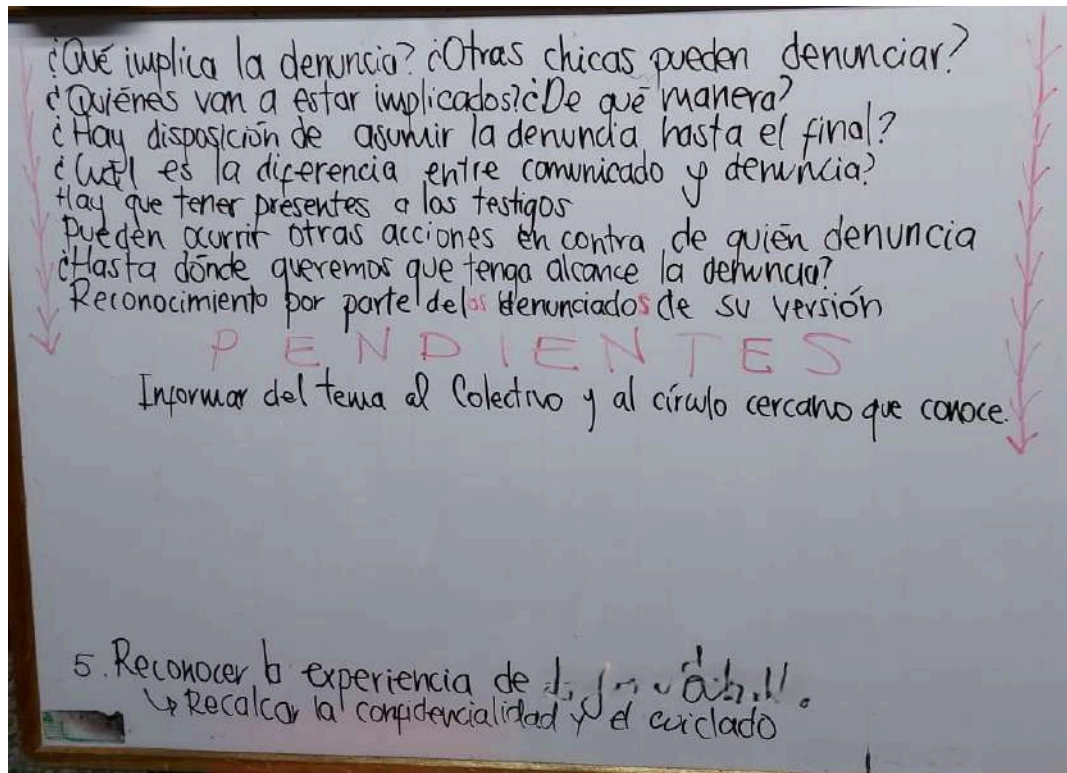 ¿Qué implica la denuncia? ¿Otras chicas pueden denunciar?
¿Quiénes van a estar implicados? ¿De qué manera?
¿Hay disposición de asumir la denuncia hasta el final?
¿Cuál es la diferencia entre comunicado y denuncia?
Hay que tener presentes a los testigos
Pueden ocurrir otras acciones en contra de quién denuncia
¿Hasta dónde queremos que tenga alcance la denuncia?
Reconocimiento por parte de los denunciados de su versión
PENDIENTES
Informar del tema al Colectivo y al círculo cercano que conoce.
5. Reconocer la experiencia de
↳ Recalcar la confidencialidad y el cuidado